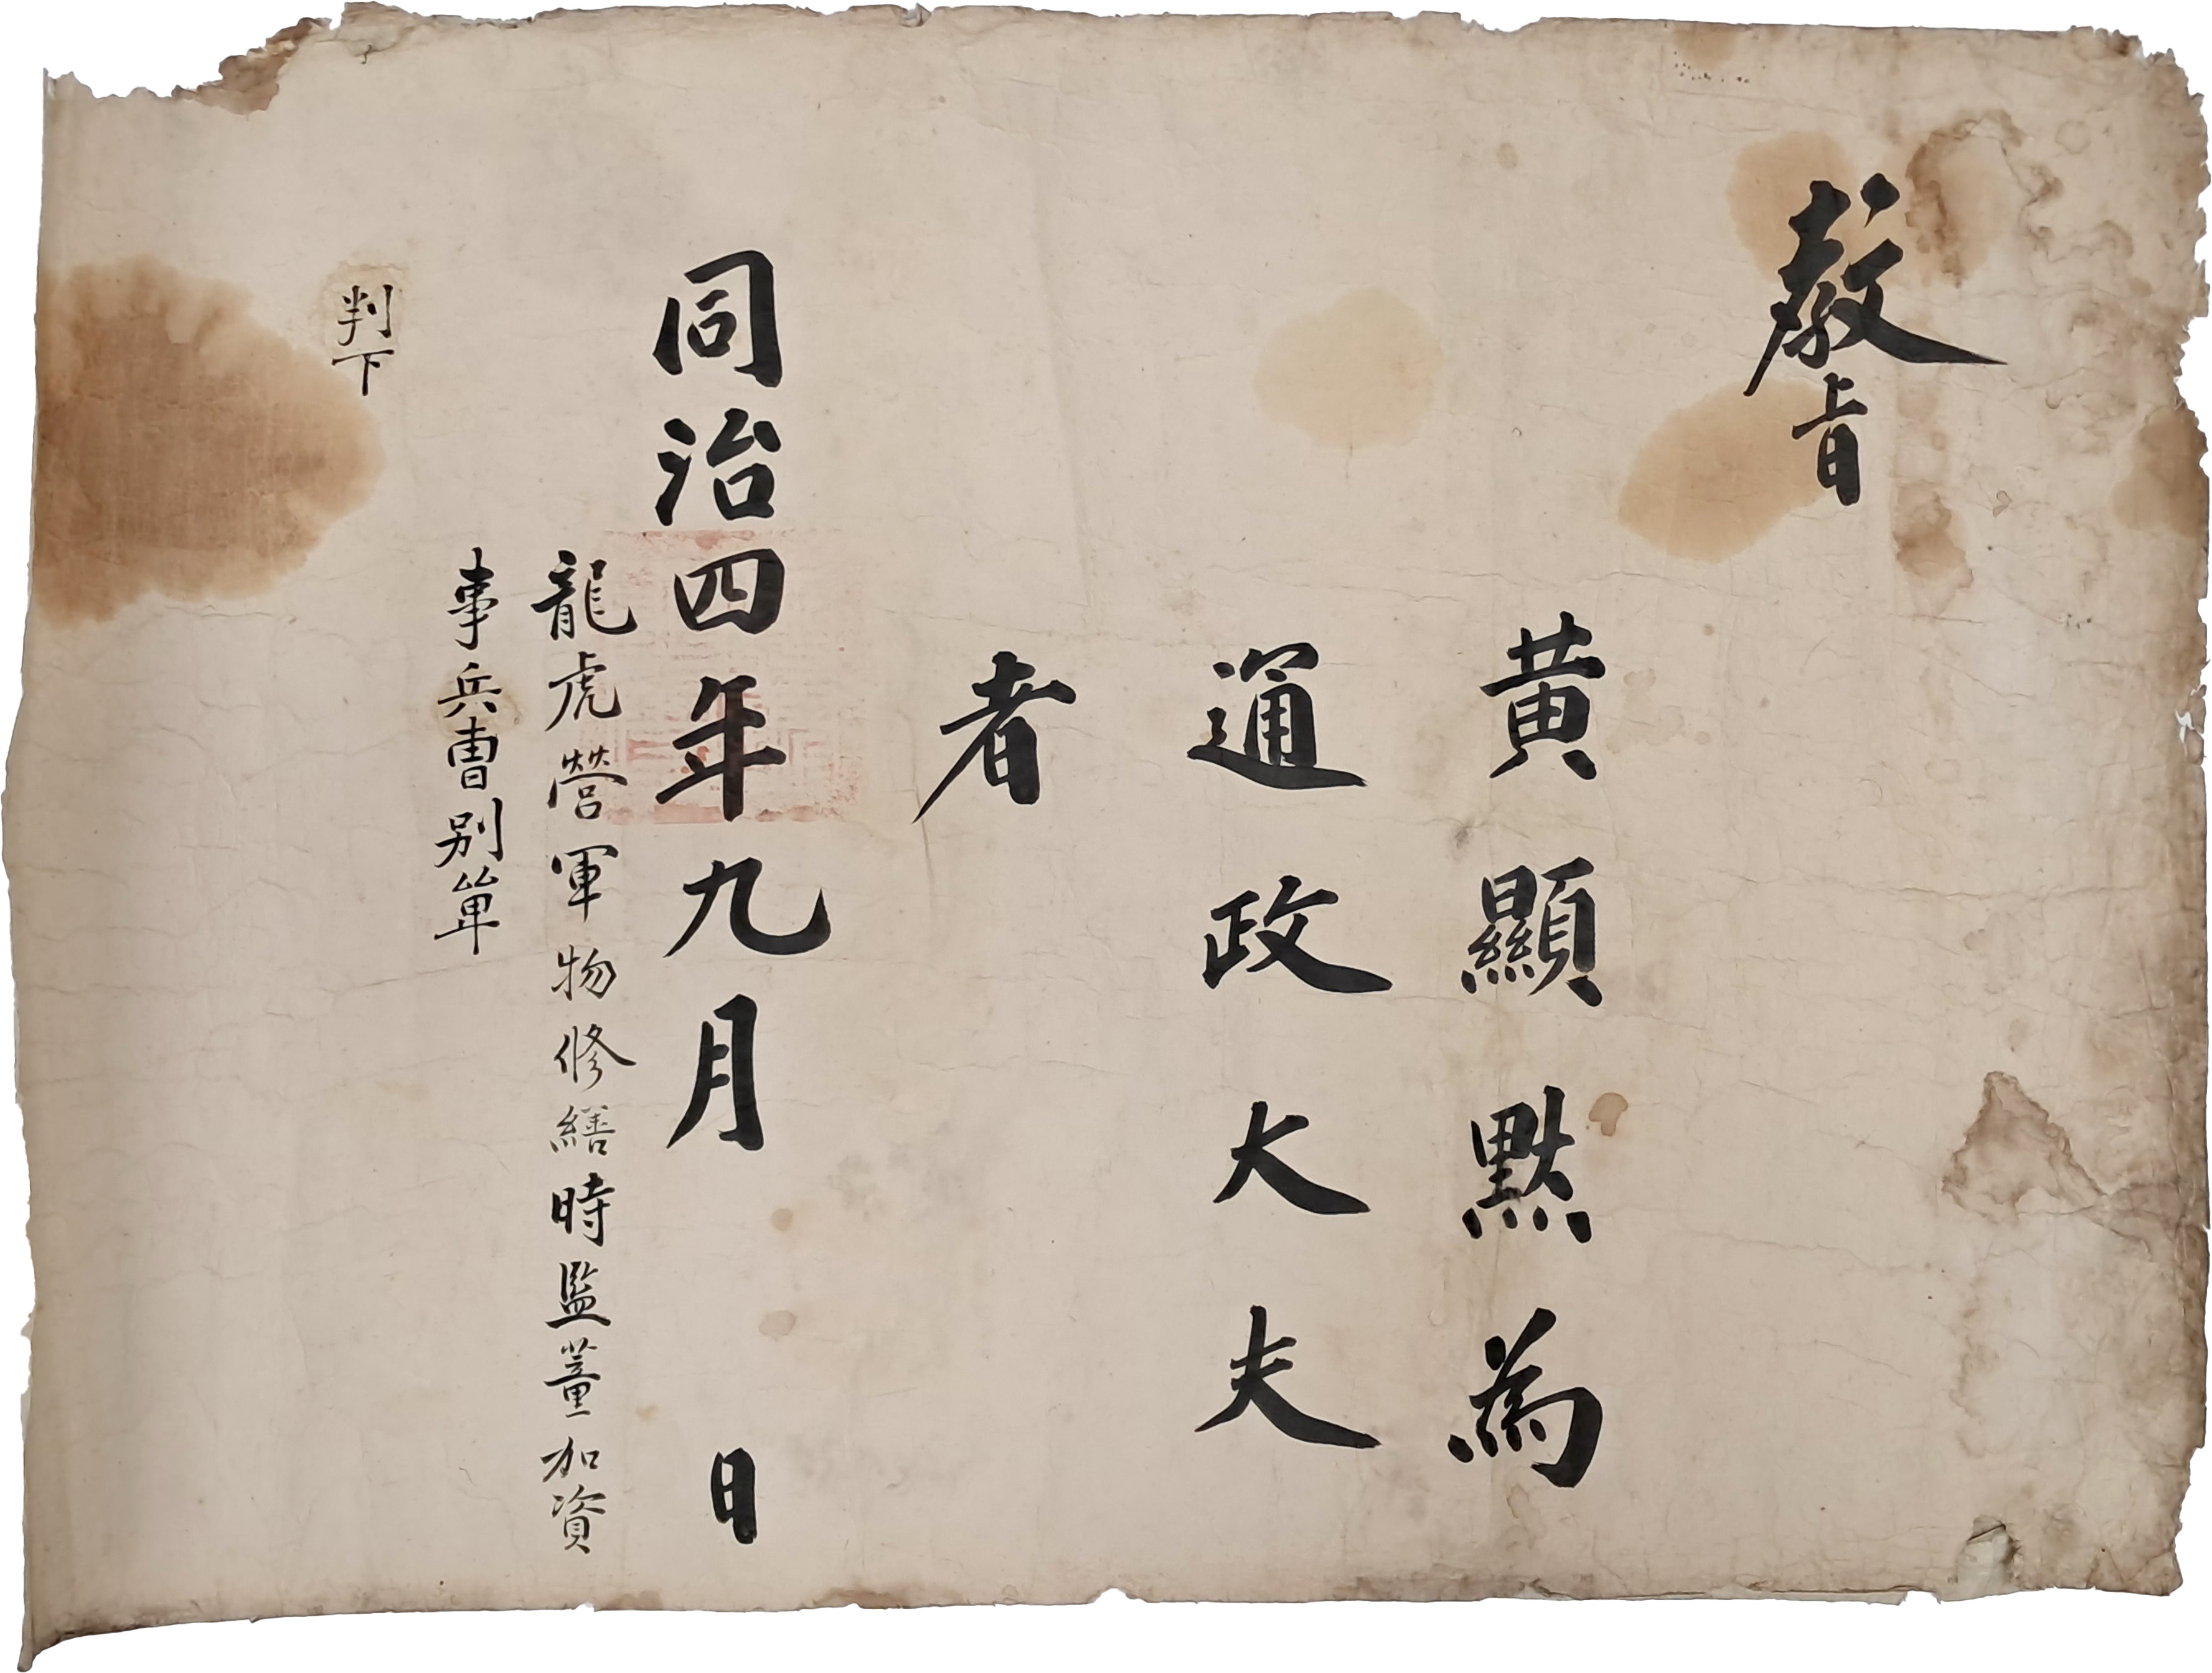 敎旨
黃顯默爲
通政大夫
者
同治四年九月 日
龍虎營軍物修繕時監董加資
事兵曺別單
判下